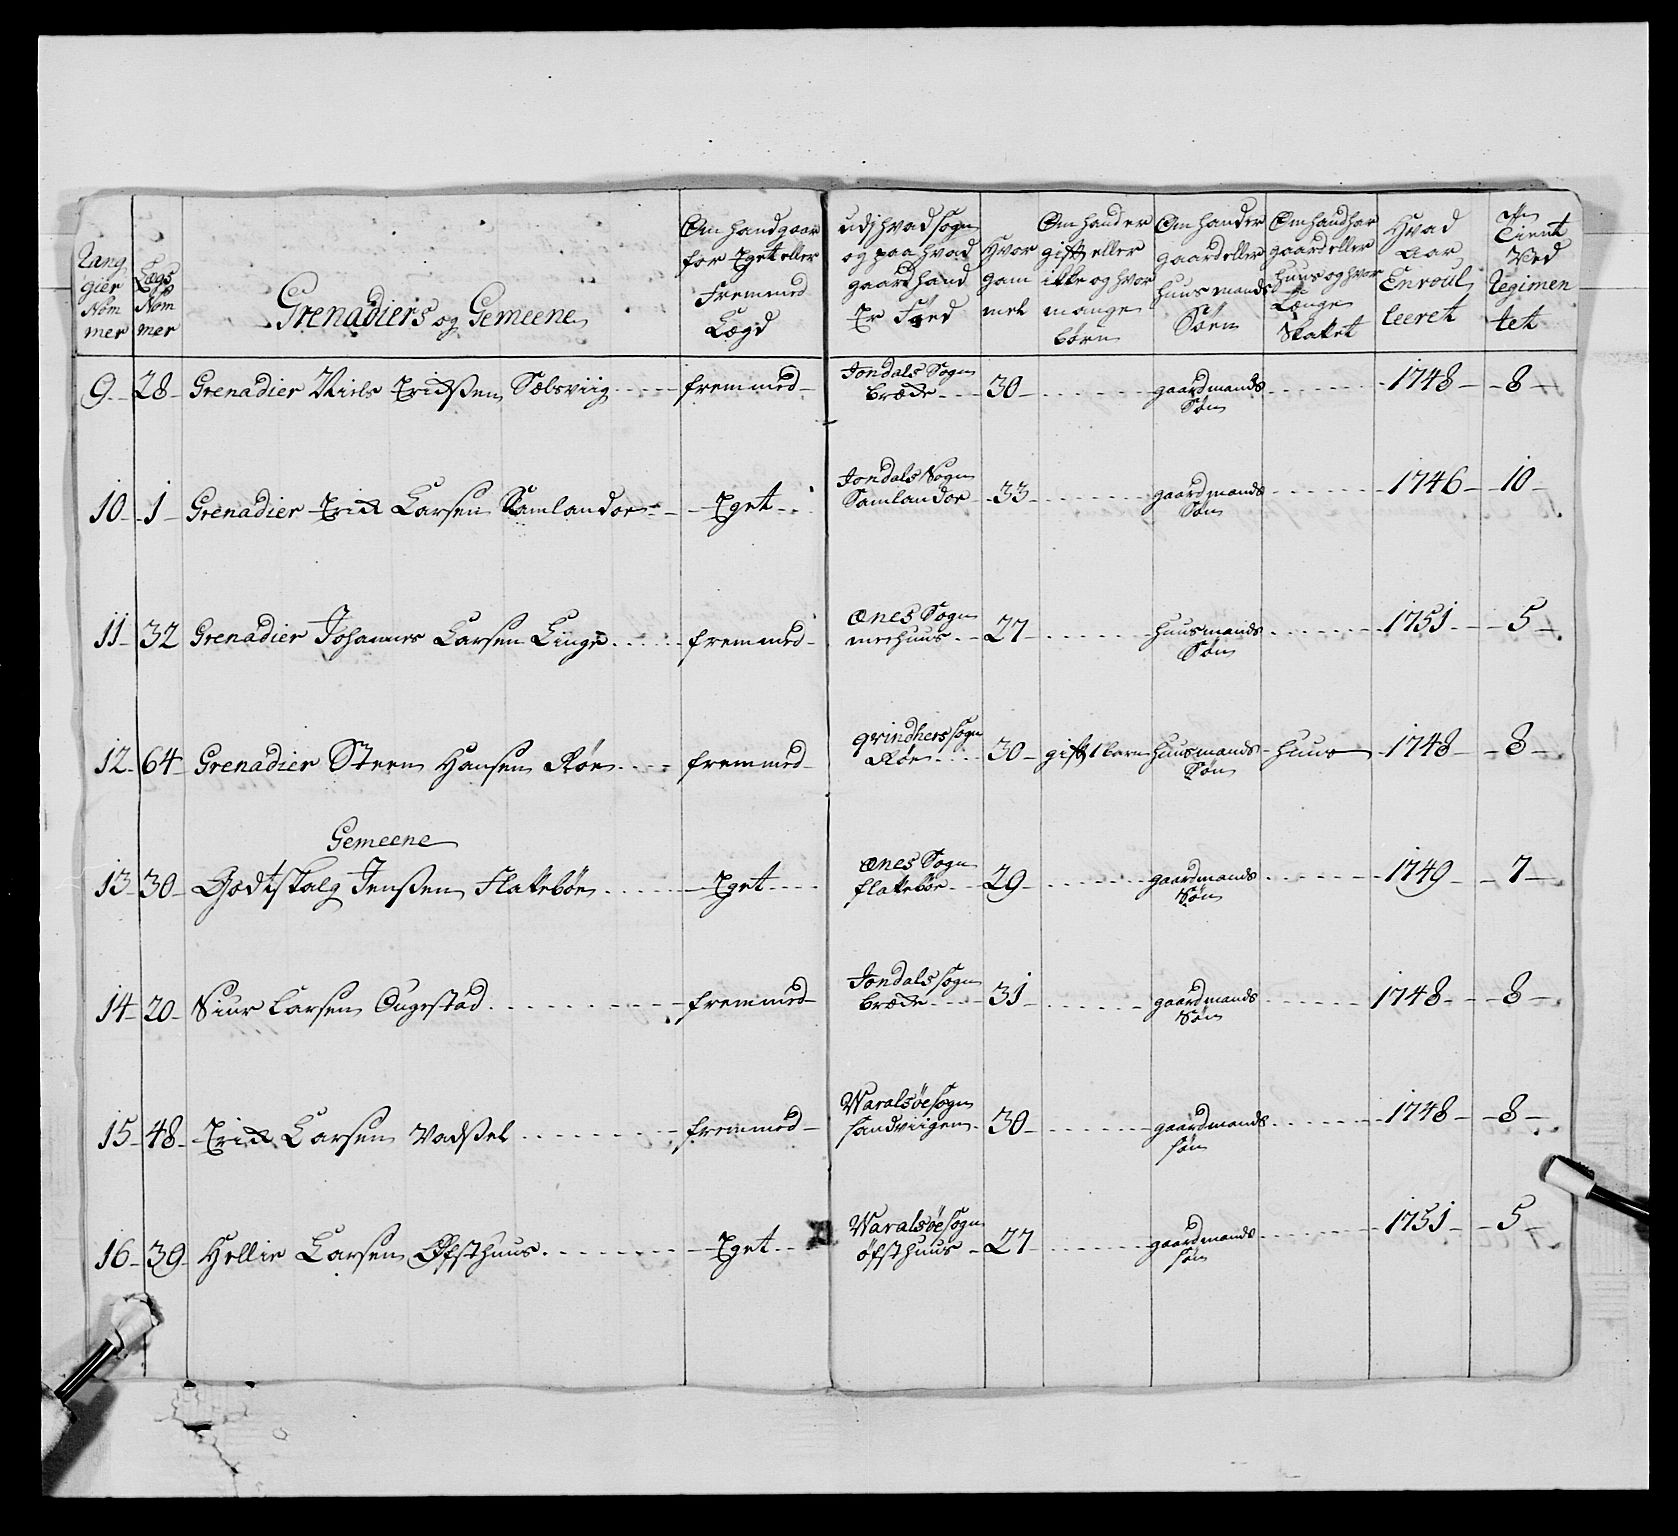 Rang gier Nom mer
Lægs Nom mer
Grenadiers og Gemeene
Om hand gaar for Eget eller Fremmed Lægd
udj hvad sogn og paa hvad gaard hand Er Føed
Hvor gam mel
Om hand er gift eller ikke og hvor mange børn
Om hand er gaard eller huus mands Søen
Om hand har gaard eller huus og hvor Længe
Hvad Aar Enroul leeret
Tient Ved Regimen tet
9 28 Grenadier Niels Erichsen Selsviig fremmed Jondals Sogn Bræde 30 gaardmands Søn 1748 8
10 1 Grenadier Erich Larsen Samlandøe Eget Jondals Sogn Samlandøe 33 gaardmands Søn 1746 10
11 32 Grenadier Johannes Larsen Linge fremmed Ænes Sogn mehuus 27 huusmands Søn 1751 5
12 64 Grenadier Steen Hansen Røe fremmed qvindhers sogn Røe 30 gift 1 barn huusmands Søn huus 1748 8
Gemeene
13 30 Godtskalg Jenssen Flatebøe Eget Ænes Sogn flatebøe 29 gaardmands Søn 1749 7
14 20 Siur Larsen Augestad fremmed Jondals sogn Bræde 31 gaardmands Søn 1748 8
15 48 Erich Larsen Vadssel fremmed Waralsöe sogn sandviigen 30 gaardmands søn 1748 8
16 39 Hellie Larsen Öfsthuus Eget Waralsöe sogn öfsthuus 27 gaardmands søn 1751 5